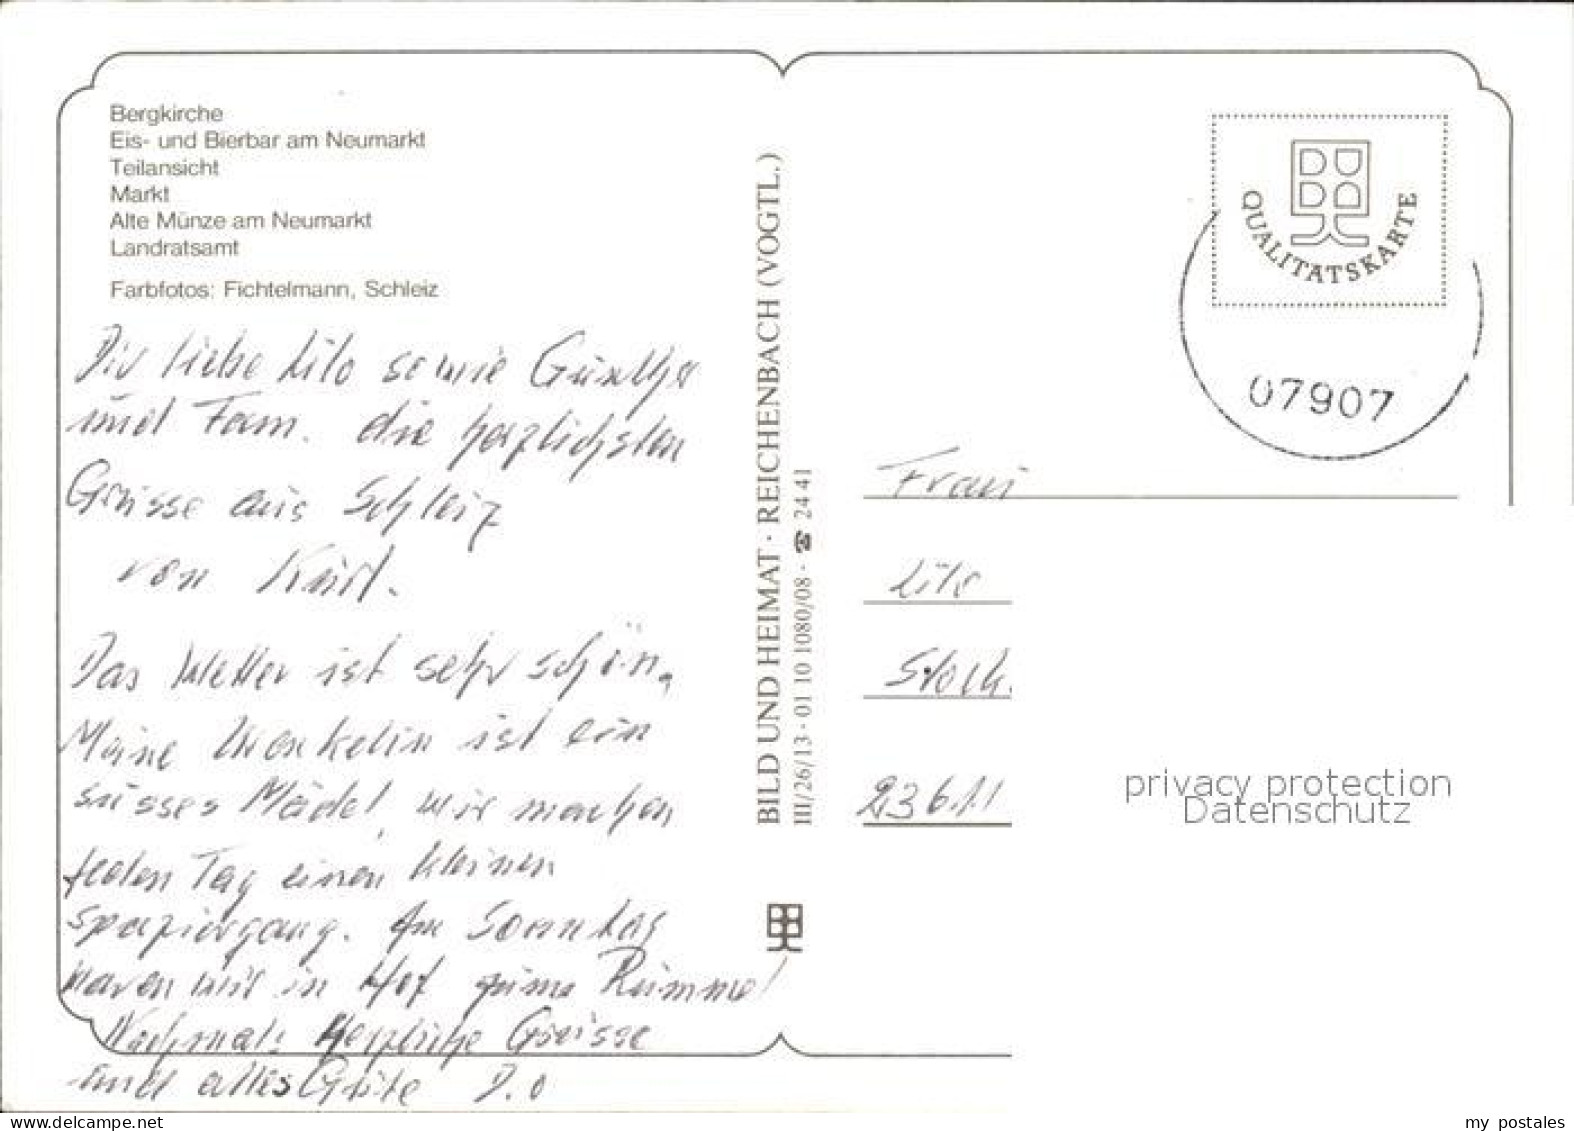 Bergkirche
Eis- und Bierbar am Neumarkt
Teilansicht
Markt
Alte Münze am Neumarkt
Landratsamt
Farbfotos: Fichtelmann, Schleiz
Dir liebe Lilo sowie Günther
und Fam. die herzlichsten
Grüsse aus Schleiz
von Kurt.
Das Wetter ist sehr schön,
Meine Urenkelin ist ein
süsses Mädel, wir machen
jeden Tag einen kleinen
Spaziergang. Am Sonntag
waren wir in Hof zum Rummel
Nochmals Herzliche Grüsse
und alles Gute D.O
BILD UND HEIMAT · REICHENBACH (VOGTL.)
III/26/13 · 01 10 1080/08 · ☎ 24 41
QUALITÄTSKARTE
07907
Frau
Lilo
23 6.11
privacy protection
Datenschutz
delcampe.net
my postales